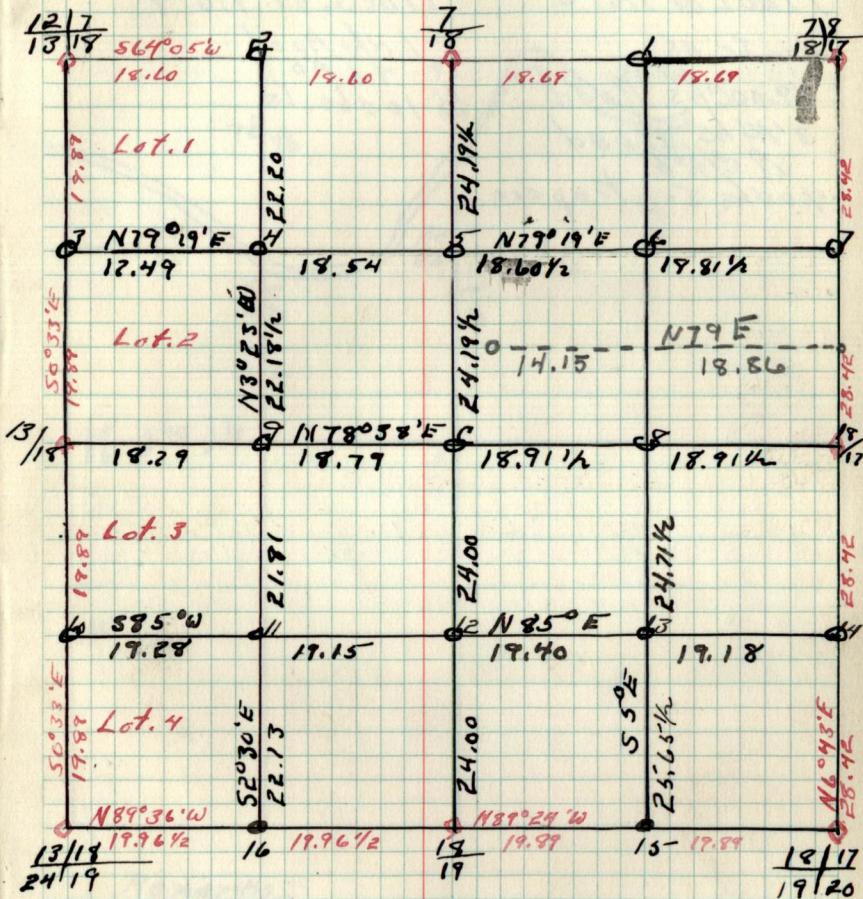 12 | 7
13 | 18
7
18
7 | 8
18 | 17
S64°05'W
2
1
18.60
18.60
18.69
18.69
Lot.1
19.89
22.20
24.19½
28.42
3
N79°19'E
4
5
N79°19'E
6
7
18.54
18.60½
19.81½
S0°33'E
19.89
Lot.2
N3°23'W
22.18½
24.19½
N79E
14.15
18.86
28.42
13/18
9
N78°38'E
C
8
18/17
18.29
18.79
18.91½
18.91½
Lot. 3
19.89
21.81
24.00
24.71½
28.42
10
S85°W
11
12
N85°E
13
14
19.28
19.15
19.40
19.18
S0°33'E
19.89
Lot.4
S2°30'E
22.13
24.00
S5°E
25.65½
N6°43'E
28.42
N89°36'W
N89°24'W
19.96½
16
19.96½
19.89
15
19.89
13 | 18
24 | 19
18
19
18 | 17
19 | 20